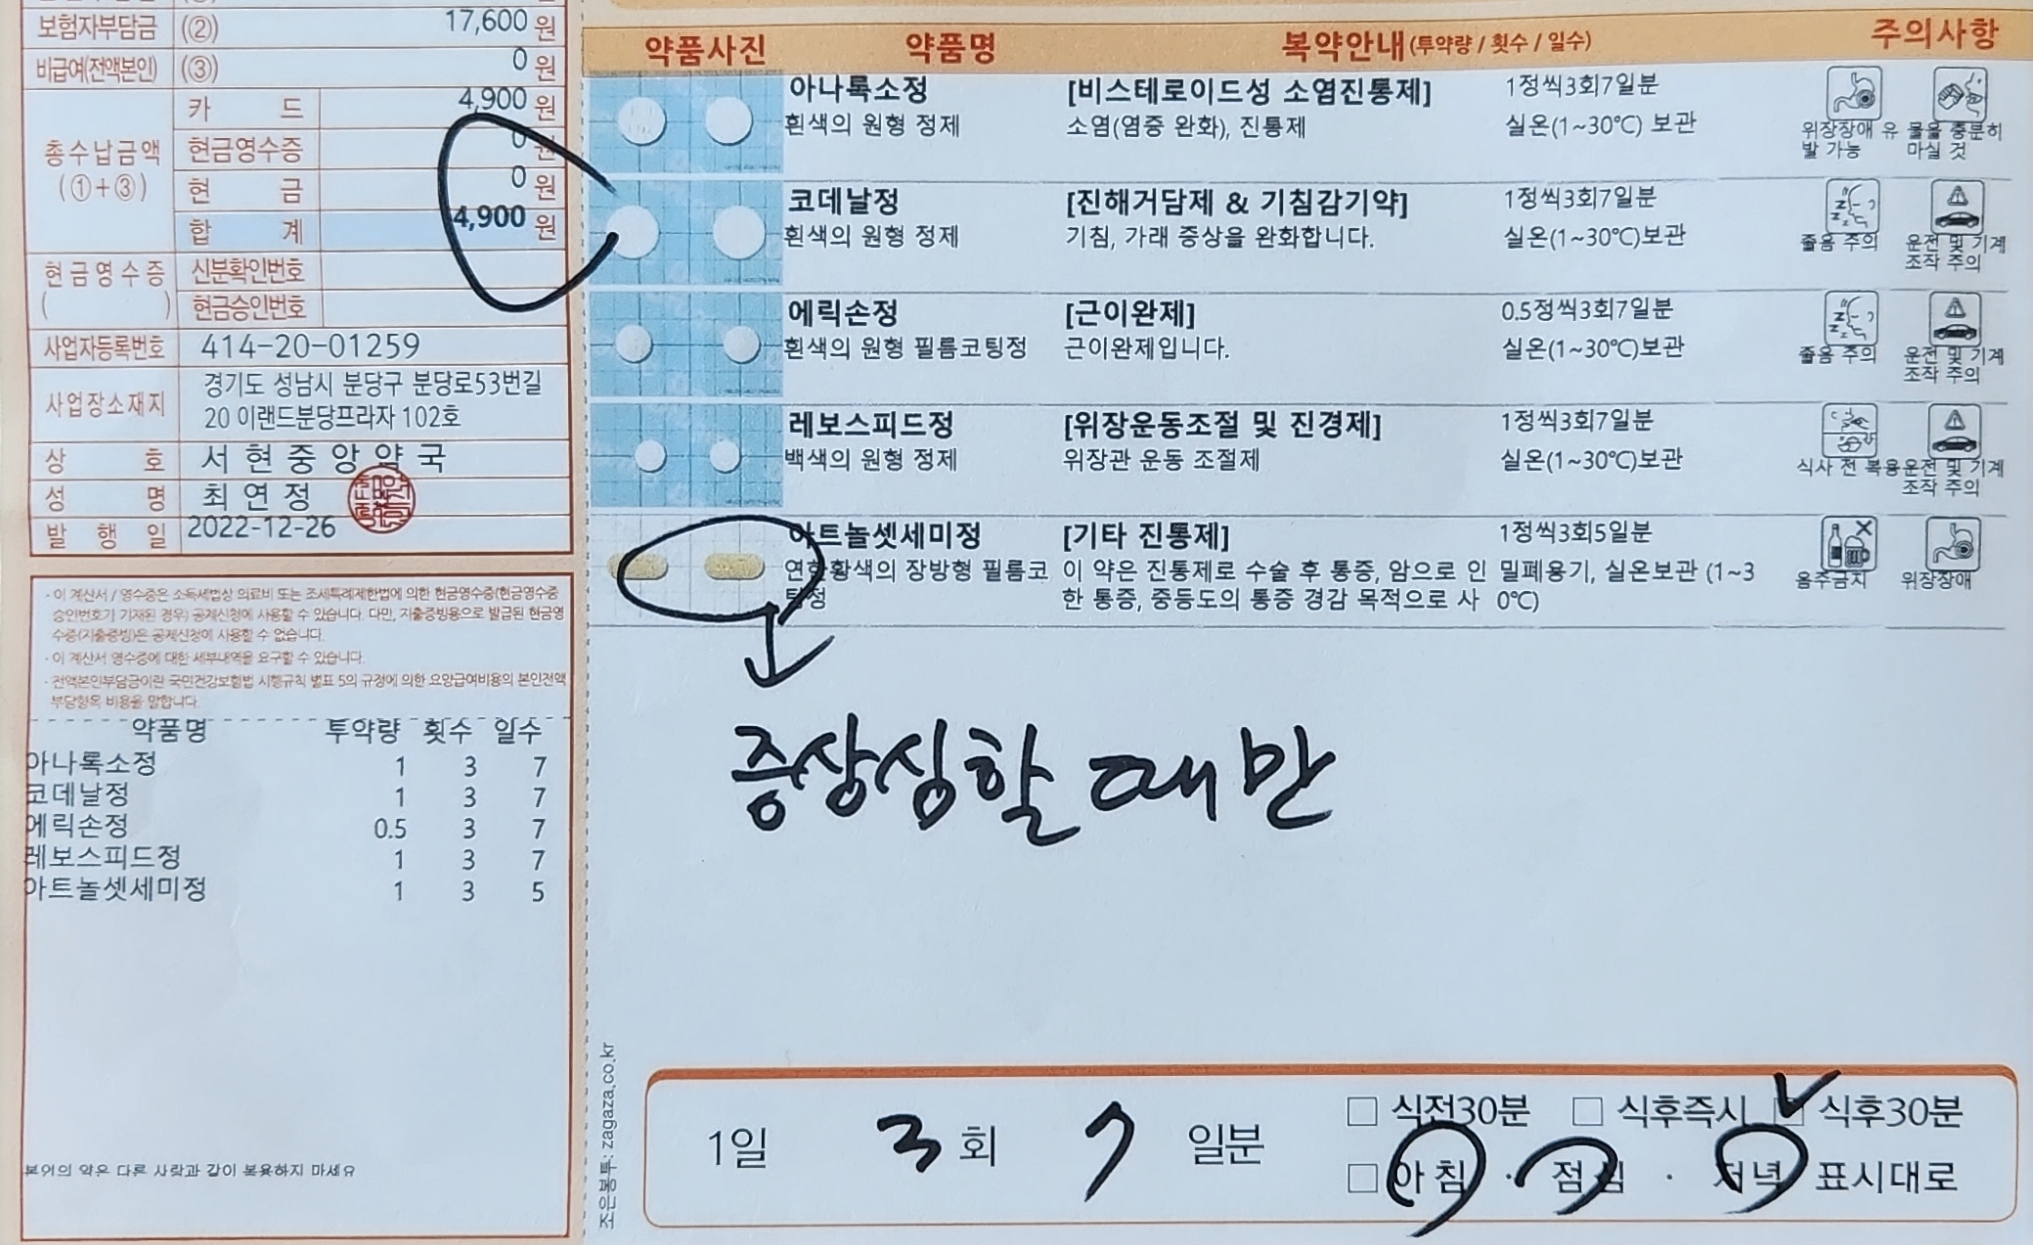 보험자부담금 (②) 17,600 원
비급여(전액본인) (③) 0 원
총수납금액
(①+③)
카 드 4,900 원
현금영수증 0 원
현 금 0 원
합 계 4,900 원
현금영수증
( )
신분확인번호
현금승인번호
사업자등록번호 414-20-01259
사업장소재지 경기도 성남시 분당구 분당로53번길
20 이랜드분당프라자 102호
상 호 서현중앙약국
성 명 최연정
발 행 일 2022-12-26
· 이 계산서 / 영수증은 소득세법상 의료비 또는 조세특례제한법에 의한 현금영수증(현금영수증
승인번호가 기재된 경우) 공제신청에 사용할 수 있습니다. 다만, 지출증빙용으로 발급된 현금영
수증(지출증빙)은 공제신청에 사용할 수 없습니다.
· 이 계산서 영수증에 대한 세부내역을 요구할 수 있습니다.
· 전액본인부담금이란 국민건강보험법 시행규칙 별표 5의 규정에 의한 요양급여비용의 본인전액
부담항목 비용을 말합니다.
약품명 투약량 횟수 일수
아나록소정 1 3 7
코데날정 1 3 7
에릭손정 0.5 3 7
레보스피드정 1 3 7
아트놀셋세미정 1 3 5
본인의 약은 다른 사람과 같이 복용하지 마세요
약품사진 약품명 복약안내(투약량 / 횟수 / 일수) 주의사항
아나록소정 [비스테로이드성 소염진통제] 1정씩3회7일분
흰색의 원형 정제 소염(염증 완화), 진통제 실온(1~30℃) 보관
위장장애 유발 가능
물을 충분히 마실 것
코데날정 [진해거담제 & 기침감기약] 1정씩3회7일분
흰색의 원형 정제 기침, 가래 증상을 완화합니다. 실온(1~30℃)보관
졸음 주의
운전 및 기계 조작 주의
에릭손정 [근이완제] 0.5정씩3회7일분
흰색의 원형 필름코팅정 근이완제입니다. 실온(1~30℃)보관
졸음 주의
운전 및 기계 조작 주의
레보스피드정 [위장운동조절 및 진경제] 1정씩3회7일분
백색의 원형 정제 위장관 운동 조절제 실온(1~30℃)보관
식사 전 복용
운전 및 기계 조작 주의
아트놀셋세미정 [기타 진통제] 1정씩3회5일분
연한황색의 장방형 필름코 이 약은 진통제로 수술 후 통증, 암으로 인 밀폐용기, 실온보관 (1~3
팅정 한 통증, 중등도의 통증 경감 목적으로 사 0℃)
음주금지
위장장애
증상심할 때만
조은봉투: zagaza.co.kr
1일 3 회 7 일분
□ 식전30분 □ 식후즉시 ☑ 식후30분
□ 아침 · 점심 · 저녁 표시대로